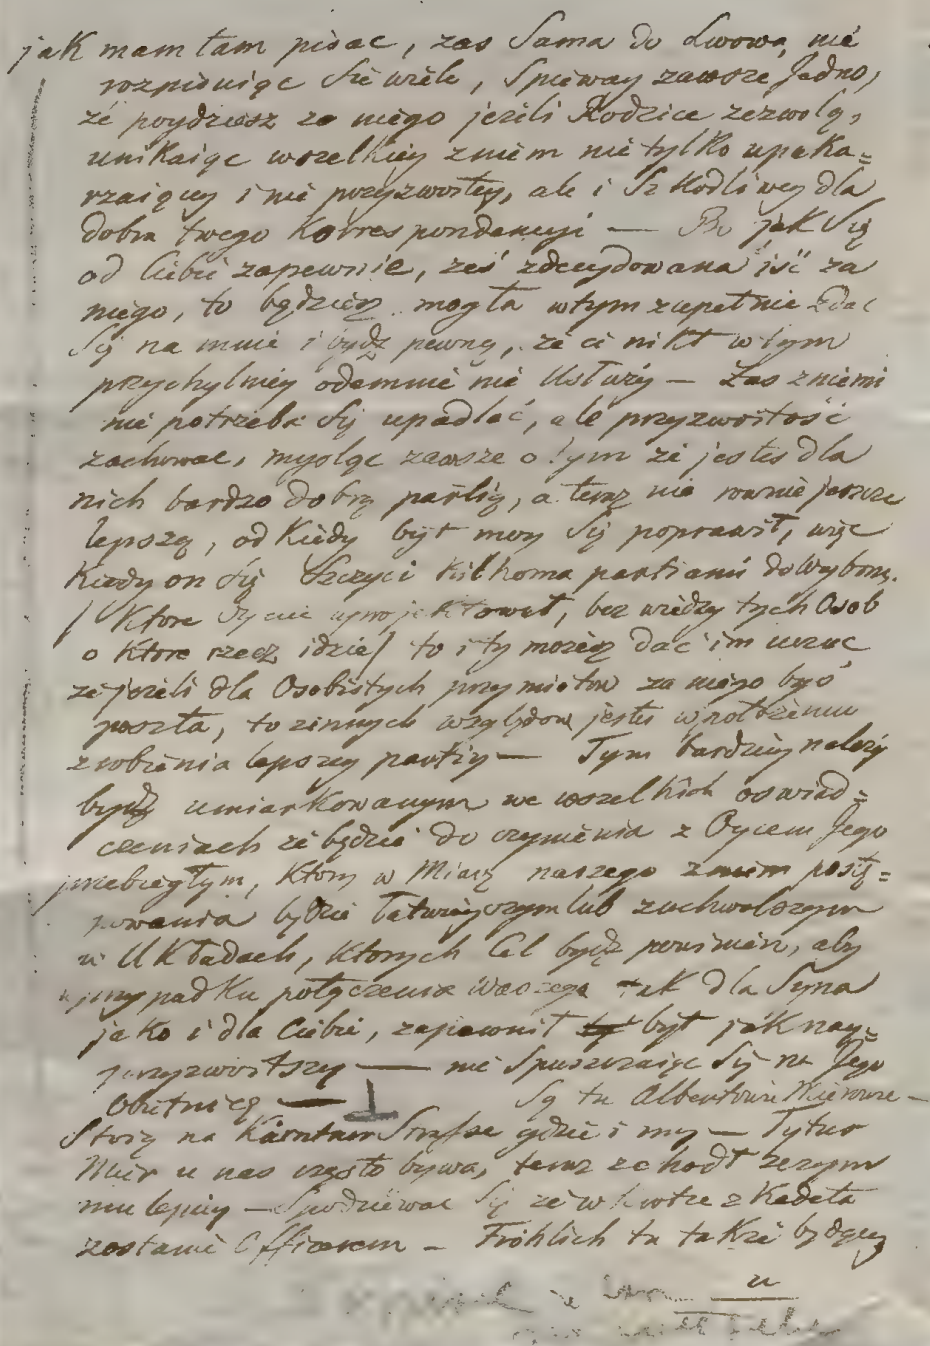 jak mam tam pisac, zas Sama do Lwowa, nie
rozpisuiąc sie wiele, Spieway zawsze Jedno,
że poydziesz za niego jeżeli Rodzice zezwolą,
unikaiąc wszelkiey zniem nie tylko upoka=
rzaiącey i nie przyzwoitey, ale i Szkodliwey dla
dobra twego Korrespondencyi — Bo jak Się
od Ciebie zapewnie, żeś zdecydowana iść za
niego, to będziesz mogła wtym zupełnie zdac
Się na mnie i bydź pewną, że ci nikt w tym
przychylniey odemnie nie Usłuży — Zas zniemi
nie potrzeba Się upadlać, ale przyzwoitość
zachować, mysląc zawsze o tym że jestes dla
nich bardzo dobrą partią, a teraz nie rownie jeszcze
lepszą, od Kiedy byt moy Się poprawił, więc
Kiedy on Się Szczyci kilkoma partiami do Wyboru.
/ Ktore Oycie uprojektował, bez wiedzy tych Osob
o Ktore rzecz idzie/ to i ty możesz dać im uczuc
że jeżeli dla Osobistych przymiotow za niego byś
poszła, to zinnych względow jestes wpołożeniu
zrobienia lepszey partiy — Tym bardziey należy
bydź umiarkowanym we wszelkich oswiad=
czeniach że będzie do czynienia z Oycem Jego
przebiegłym, Ktory w Miarę naszego znim postę=
powania będzie łatwieyszym lub zuchwalszym
w Układach, Ktorych Cel bydź powinien, aby
wprzypadku połączenia Waszego tak dla Syna
jako i dla Ciebie, zapewnił byt jak nay=
przyzwoitszy — nie Spuszczaiąc Się na Jego
Obietnicę — Są tu Albertowie Mierowie —
Stoią na Kärntner Strasse gdzie i my — Tytus
Mier u nas często bywa, teraz zchodł zczym
mu lepiey — Spodziewac Się że wkrotce z Kadeta
zostanie Officerem — Fröhlich tu także będący
u